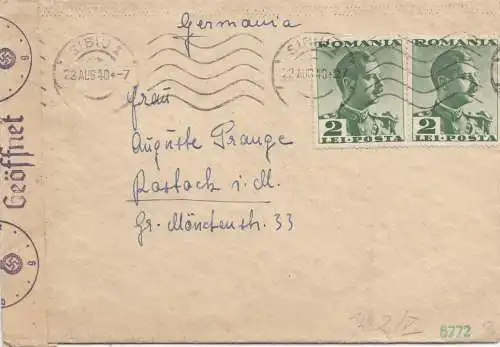 Germania
SIBIU 1
22 AUG 40 ·-7
SIBIU 1
22 AUG 40 ·-7
ROMANIA
2
LEI·POSTA
ROMANIA
2
LEI·POSTA
Frau
Auguste Prange
Rostock i. M.
Gr. Mönchenstr. 33
Geöffnet
g
g
g
g
6772